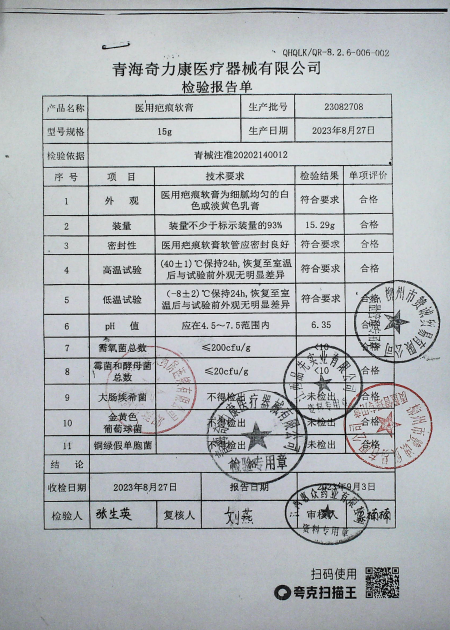 QHQLK/QR-8.2.6-006-002
青海奇力康医疗器械有限公司
检验报告单
产品名称 医用疤痕软膏 生产批号 23082708
型号规格 15g 生产日期 2023年8月27日
检验依据 青械注准20202140012
序号 项目 技术要求 检验结果 单项评价
1 外观 医用疤痕软膏为细腻均匀的白色或淡黄色乳膏 符合要求 合格
2 装量 装量不少于标示装量的93% 15.29g 合格
3 密封性 医用疤痕软膏软管应密封良好 符合要求 合格
4 高温试验 (40±1)℃保持24h,恢复至室温后与试验前外观无明显差异 符合要求 合格
5 低温试验 (-8±2)℃保持24h,恢复至室温后与试验前外观无明显差异 符合要求 合格
6 pH 值 应在4.5~7.5范围内 6.35 合格
7 需氧菌总数 ≤200cfu/g <10 合格
8 霉菌和酵母菌总数 ≤20cfu/g <10 合格
9 大肠埃希菌 不得检出 未检出 合格
10 金黄色葡萄球菌 不得检出 未检出 合格
11 铜绿假单胞菌 不得检出 未检出 合格
结论
收检日期 2023年8月27日 报告日期 2023年9月3日
检验人 张生英 复核人 刘燕 审核
检验专用章
资料专用章
资料专用章
扫码使用
夸克扫描王